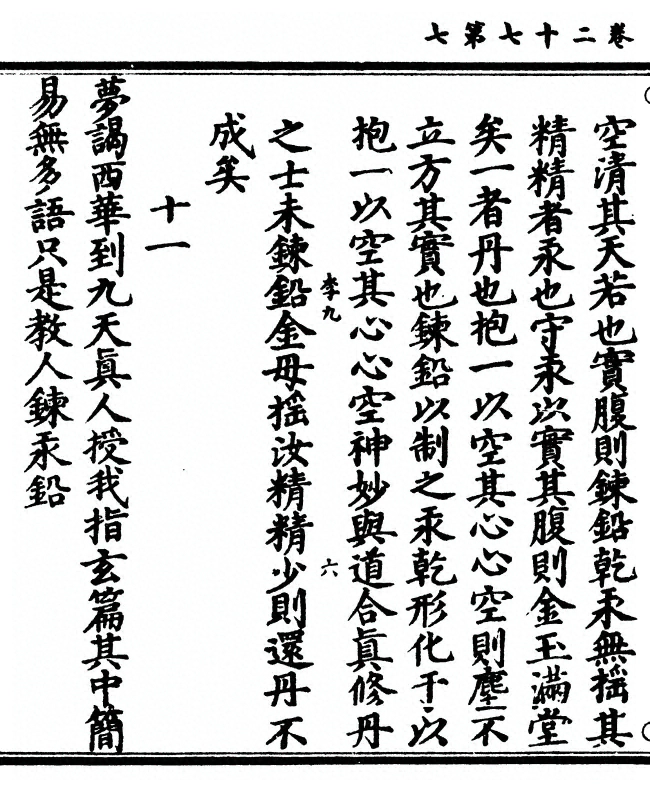 卷二十七第七
空清其天若也實腹則鍊鉛乾汞無搖其
精精者汞也守汞以實其腹則金玉滿堂
矣一者丹也抱一以空其心心空則塵不
立方其實也鍊鉛以制之汞乾形化于以
抱一以空其心心空神妙與道合眞修丹
李九
六
之士未鍊鉛金毋搖汝精精少則還丹不
成矣
十一
夢謁西華到九天眞人授我指玄篇其中簡
易無多語只是教人鍊汞鉛